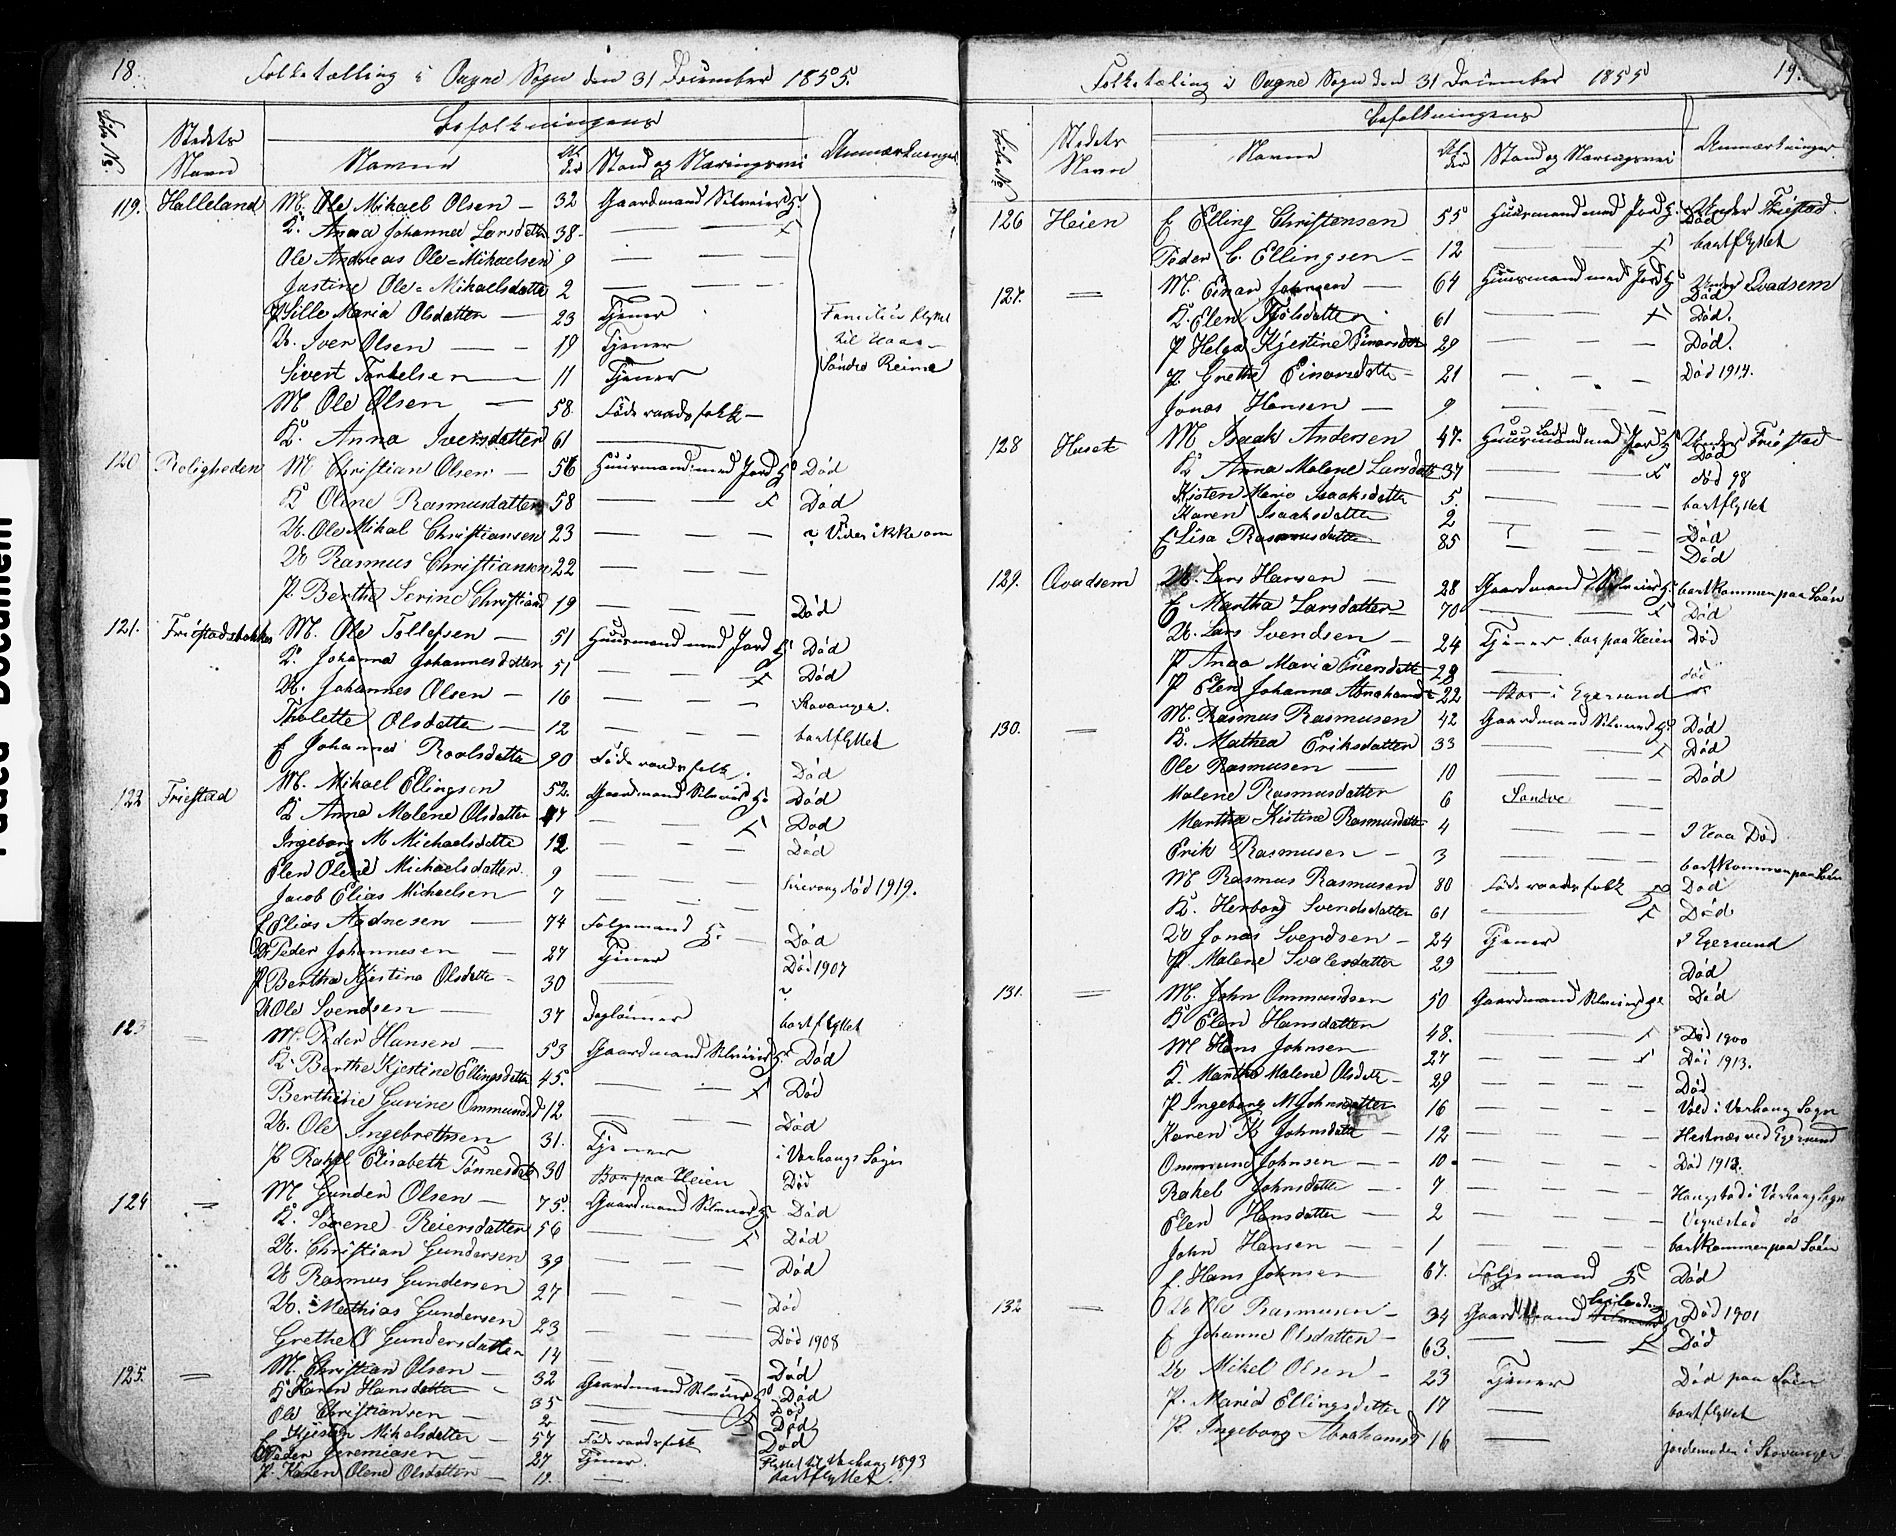 18.
Folketælling i Oagne Sogn den 31 December 1855.
Løbe No.
Stedets Navn
Befolkningens
Navne
Alder
Stand og Næringsvei
Anmærkninger
119. Halleland M. Ole Mikael Olsen — 32 Gaardmand Selveier H.
K. Anna Johanna Larsdatter 38 — — f
Ole Andreas Ole-Mikaelsen 9 — — —
Justine Ole-Mikaelsdatte 2 — — —
P. Sille Maria Olsdatter — 23 Tjener Familien flyttet
U. Iver Olsen — — 19 Tjener til Haaa —
Sivert Torkelsen — 11 Tjener Søndre Reime
M Ole Olsen — 58. Føderaadsfolk —
K. Anna Iversdatter 61 —
120 Roligheden M Christian Olsen — 56 Huusmand med Jord H Død
K Oline Rasmusdatter 58 — — f Død
U. Ole Mikal Christiansen 23 — — — ? Vides ikke om
U Rasmus Christiansen 22 — — —
P. Berthe Serine Christiand 19 — — — Død
121. Friestadbakke M. Ole Tollefsen — 51 Huusmand med Jord H. Død
K. Johanna Johannesdatter 51 — — f Død
U. Johannes Olsen — 16 — — — Stavanger.
Tholette Olsdatte — 12 — — — bortflyttet
E Johanna Roalsdatte 90 Føderaadsfolk. Død
122 Friestad M. Mikael Ellingsen 52. Gaardmand Selveier H. Død
K Anna Malene Olsdatter 47 — — f Død
Ingeborg M Michaelsdatte 12 — — — Død
Elen Oline Michaelsdatter. 9 — — —
Jacob Elias Michaelsen — 7 — — — Sirevaag død 1919.
E Elias Aadnesen — 74 Følgemand H. — Død
U. Peder Johannesen — 27 Tjener Død 1907
P Berthe Kjestina Olsdatte — 30 — ?
U Ole Svendsen — 37 Daglønner bortflyttet
123 — M. Peder Hansen — 53 Gaardmand Selveier H Død
K. Berthe Kjestine Ellingsdatte 45. — — f Død
Berthine Gurine Ommundsd 12 — — — Død
U. Ole Ingebrethsen 31. Tjener i Varhaugs Sogn
P Rakel Elisabeth Tønnesdat 30 Boe paa Heien Død
124 — M Gunder Olsen — 75. Gaardmand Selveier H Død
K. Sørene Reiersdatter 56 — — f Død
U. Christian Gundersen 39 — — — Død
U Rasmus Gundersen 27 — — —
U. Mathias Gundersen 23 — — — Død
Grethe O Gundersdatter 14 — — — Død 1908
125. — M. Christian Olsen — 32 Gaardmand Selveier H Død
K Karen Hansdatter — 35 — Død
Ole Christiansen — 2 — — Død
E Kjersten Mikelsdatter — 57 Føderaadsfolk Død
U Peder Jeremiasen — 27 Tjener. Flyttet til Varhaug 1893
P. Karen Oline Olsdatter — 19. — bortflyttet.
19.
Folketæling i Oagne Sogn den 31 December 1855
Løbe No
Stedets Navn
Befolkningens
Navne
Alder
Stand og Næringsvei
Anmærkninger
126 Heien E Elling Christensen 55 Huusmand med Jord H. Under Friestad. Død
Peder C. Ellingsen — 12 — — f bortflyttet
127. — M. Einar — 64 Huusmand med Jord H Under Qvadsem Død
K. Elen Tjølsdatter 61 — — f Død.
P Helga Kjestine Einarsdat 29 — — — Død.
P. Grethe Einarsdatte — 21 — — — Død 1914.
Jonas Hansen — 9 — — —
128 Huset M Isaak Andersen 47. Huusmand med Jord H Under Friestad Død
K Anna Malene Larsdatte 37 — — f død 98
Kisten Maria Isaaksdatte 5. — — bortflyttet
Karen Isaaksdatte 2 — — Død
E Lisa Rasmusdatte 85 — — Død
129. Qvadsem U. Lars Hansen — 28 Gaardmand Selveier H. bortkommen paa Søen
E Martha Larsdatter 70 — f Død
U. Lars Svendsen — 24 Tjener boe paa Heien Død
P Anna Maria Einersdatte 28 — — — død
P Elen Johanna Abrahamsd 22 Boe i Egersund
130. — M. Rasmus Rasmusen 42 Gaardmand Selveier H. Død
K. Mathea Eriksdatter 33 — — f Død
Ole Rasmusen — 10 — — Død
Malene Rasmusdatter 6 Sandve —
Martha Kistine Rasmusdatte 4 — — I Haa Død
Erik Rasmusen — 3 — — bortkommen paa Søen
M Rasmus Rasmusen 80 Føderaadsfolk H Død
K. Herborg Svendsdatter 61 — f Død
U Jonas Svendsen — 24 Tjener I Egersund
P. Malene Svalesdatter 29 — Død
131. — M. John Ommundsen 50 Gaardmand Selveier H. Død
K Elen Hansdatter 48. — — f Død 1900
M Hans Johnsen 27 — — f Død 1913.
K. Martha Malene Olsdatte 29 — — — Død
P Ingeborg M Johnsdatter 16 — — — Vold i Varhaug Sogn
Karen K Johnsdatte — 12 — — — Hestnæs ved Egersund
Ommund Johnsen — 10 — — — Død 1913.
Rakel Johnsdatte — 7 — — — Haugstad i Varhaug Sogn
Elen Hansdatter — 2 — — — Vigrestad do
John Hansen — 1 — — — bortkommen paa Søen
E. Hans Johnsen — 67. Følgemand H Død
132 — U Ole Rasmusen — 34 Gaardmand Leilending Død 1901
E Johanne Olsdatter — 63. — f Død
U Mikel Olsen — 23 Tjener Død paa Søen
P. Maria Ellingsdatter 17 — bortflyttet
P. Ingeborg Abrahamsd 16 — jordemoder i Stavanger